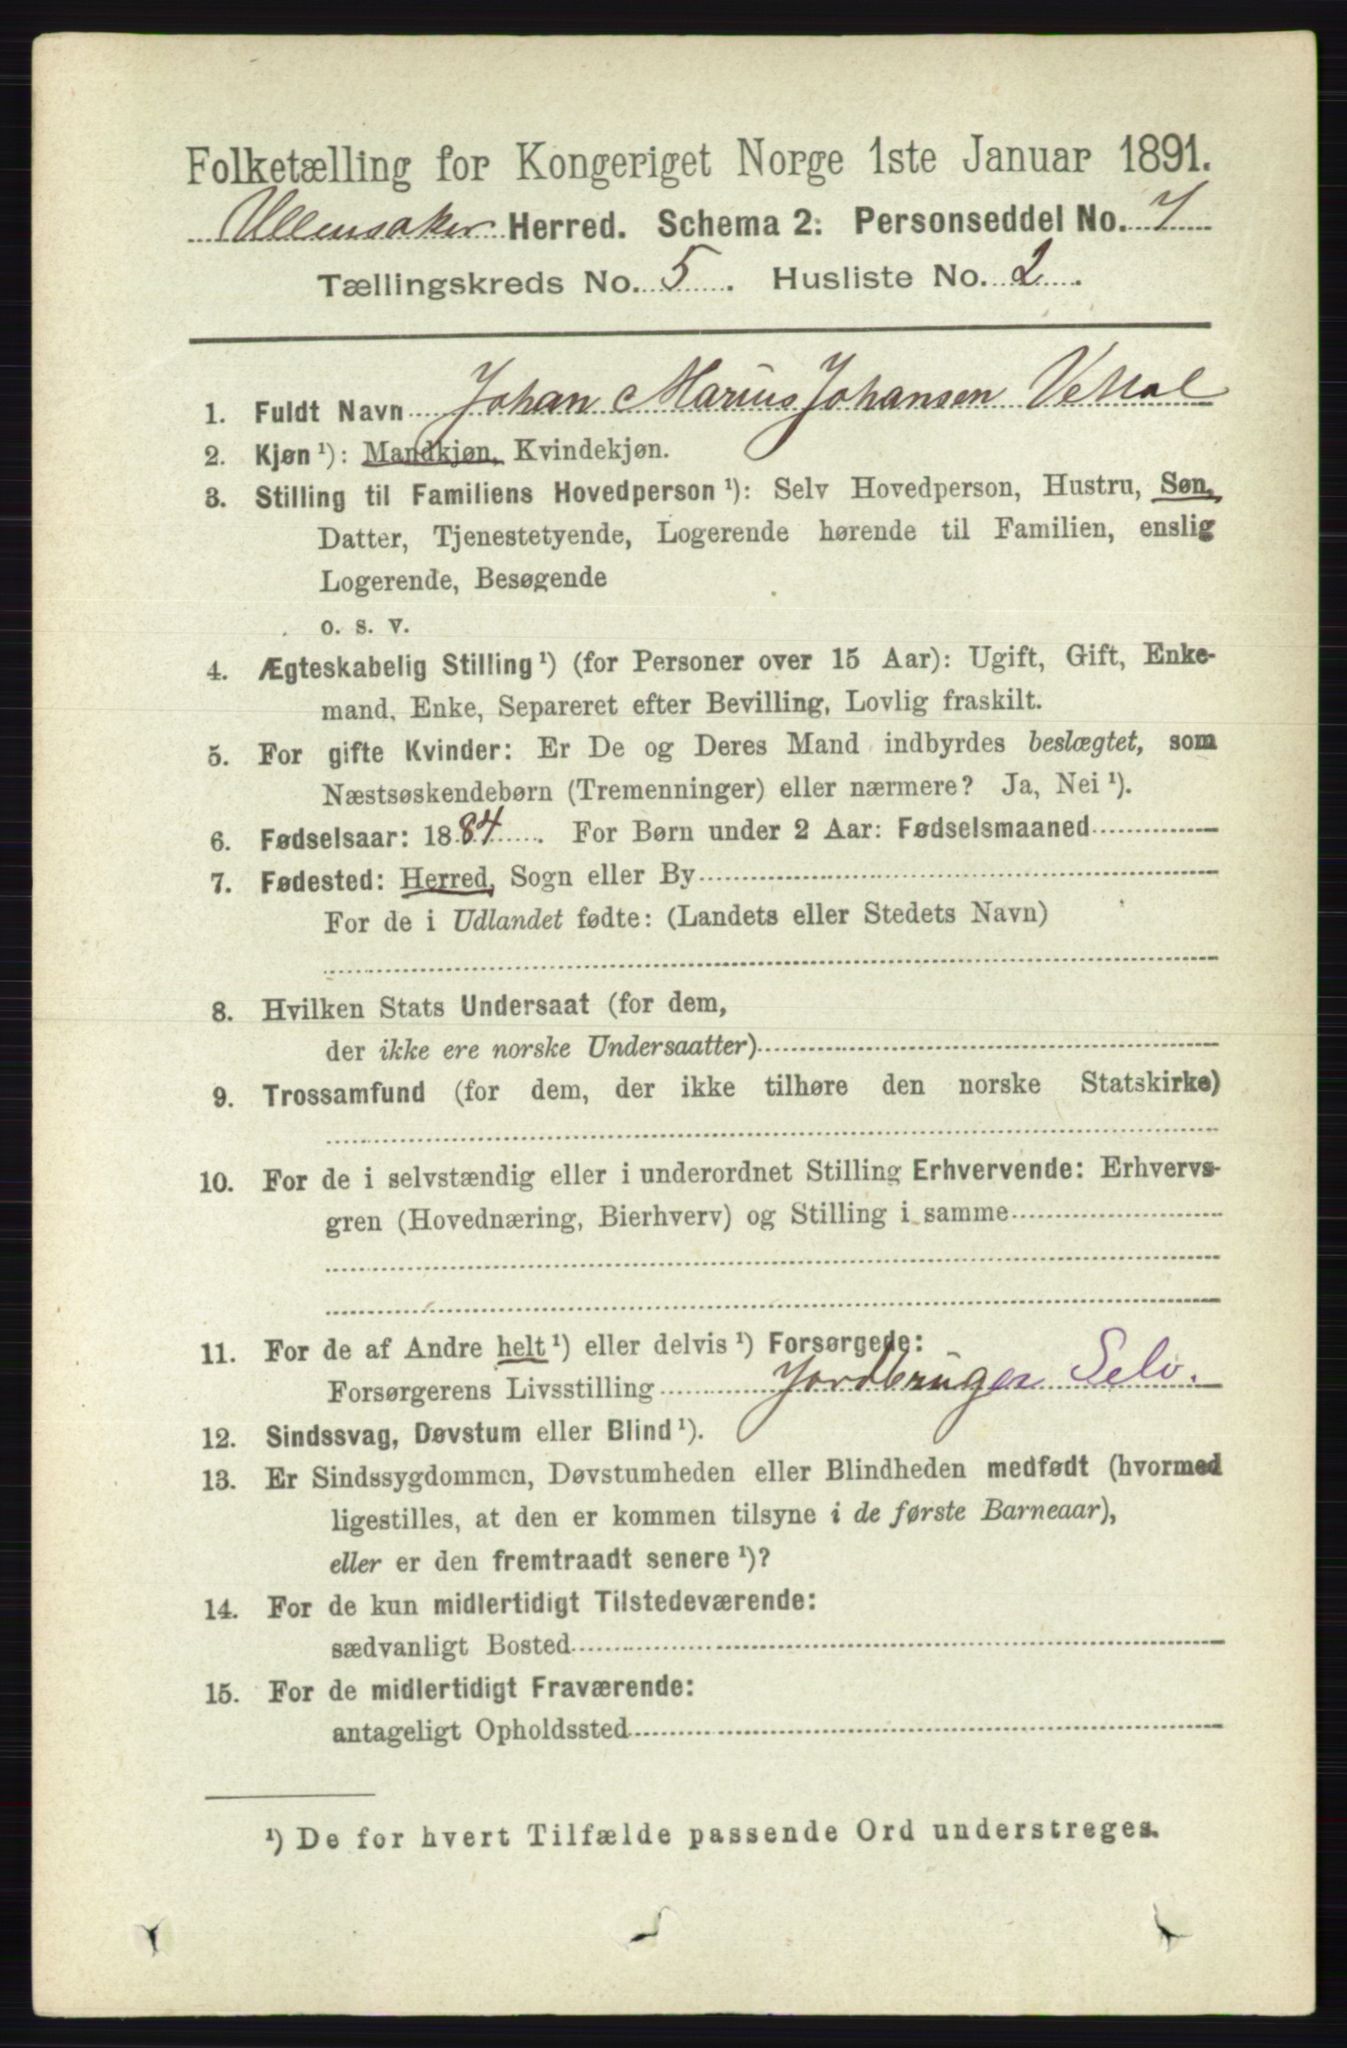 Folketælling for Kongeriget Norge 1ste Januar 1891.
Ullensaker Herred. Schema 2: Personseddel No. 7
Tællingskreds No. 5. Husliste No. 2.
1. Fuldt Navn Johan Marius Johansen
2. Kjøn ¹): Mandkjøn, Kvindekjøn.
3. Stilling til Familiens Hovedperson ¹): Selv Hovedperson, Hustru, Søn,
Datter, Tjenestetyende, Logerende hørende til Familien, enslig
Logerende, Besøgende
o. s. v.
4. Ægteskabelig Stilling ¹) (for Personer over 15 Aar): Ugift, Gift, Enke-
mand, Enke, Separeret efter Bevilling, Lovlig fraskilt.
5. For gifte Kvinder: Er De og Deres Mand indbyrdes beslægtet, som
Næstsøskendebørn (Tremenninger) eller nærmere? Ja, Nei ¹).
6. Fødselsaar: 1884. For Børn under 2 Aar: Fødselsmaaned
7. Fødested: Herred, Sogn eller By
For de i Udlandet fødte: (Landets eller Stedets Navn)
8. Hvilken Stats Undersaat (for dem,
der ikke ere norske Undersaatter)
9. Trossamfund (for dem, der ikke tilhøre den norske Statskirke)
10. For de i selvstændig eller i underordnet Stilling Erhvervende: Erhvervs-
gren (Hovednæring, Bierhverv) og Stilling i samme
11. For de af Andre helt ¹) eller delvis ¹) Forsørgede:
Forsørgerens Livsstilling Jordbruger Selv.
12. Sindssvag, Døvstum eller Blind ¹).
13. Er Sindssygdommen, Døvstumheden eller Blindheden medfødt (hvormed
ligestilles, at den er kommen tilsyne i de første Barneaar),
eller er den fremtraadt senere ¹)?
14. For de kun midlertidigt Tilstedeværende:
sædvanligt Bosted
15. For de midlertidigt Fraværende:
antageligt Opholdssted
¹) De for hvert Tilfælde passende Ord understreges.